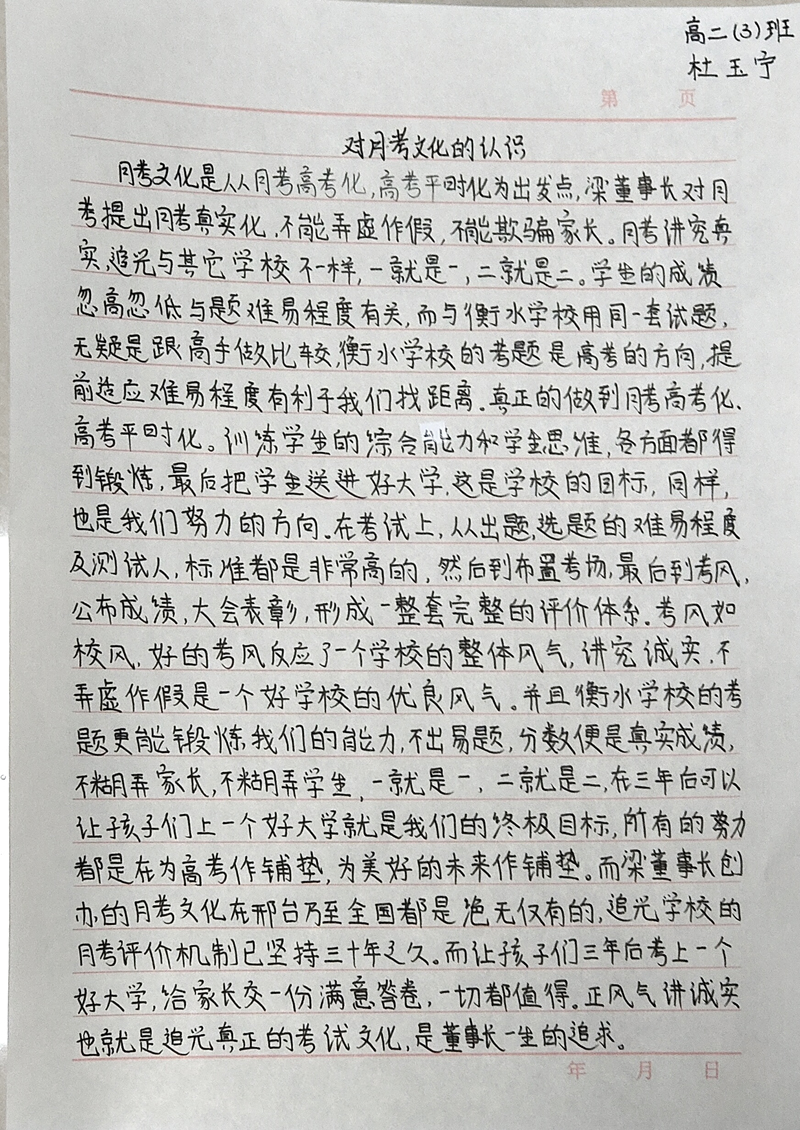 高二(3)班
杜玉宁
第 页
对月考文化的认识
月考文化是从月考高考化,高考平时化为出发点,梁董事长对月
考提出月考真实化,不能弄虚作假,不能欺骗家长。月考讲究真
实,追光与其它学校不一样,一就是一,二就是二。学生的成绩
忽高忽低与题难易程度有关,而与衡水学校用同一套试题,
无疑是跟高手做比较,衡水学校的考题是高考的方向,提
前适应难易程度有利于我们找距离。真正的做到月考高考化、
高考平时化。训练学生的综合能力和学生思维,各方面都得
到锻炼,最后把学生送进好大学,这是学校的目标,同样,
也是我们努力的方向。在考试上,从出题,选题的难易程度
及测试人,标准都是非常高的,然后到布置考场,最后到考风,
公布成绩,大会表彰,形成一整套完整的评价体系。考风如
校风,好的考风反应了一个学校的整体风气,讲究诚实,不
弄虚作假是一个好学校的优良风气。并且衡水学校的考
题更能锻炼我们的能力,不出易题,分数便是真实成绩,
不糊弄家长,不糊弄学生,一就是一,二就是二,在三年后可以
让孩子们上一个好大学就是我们的终极目标,所有的努力
都是在为高考作铺垫,为美好的未来作铺垫。而梁董事长创
办的月考文化在邢台乃至全国都是绝无仅有的,追光学校的
月考评价机制已坚持三十年之久。而让孩子们三年后考上一个
好大学,给家长交一份满意答卷,一切都值得。正风气讲诚实
也就是追光真正的考试文化,是董事长一生的追求。
年 月 日